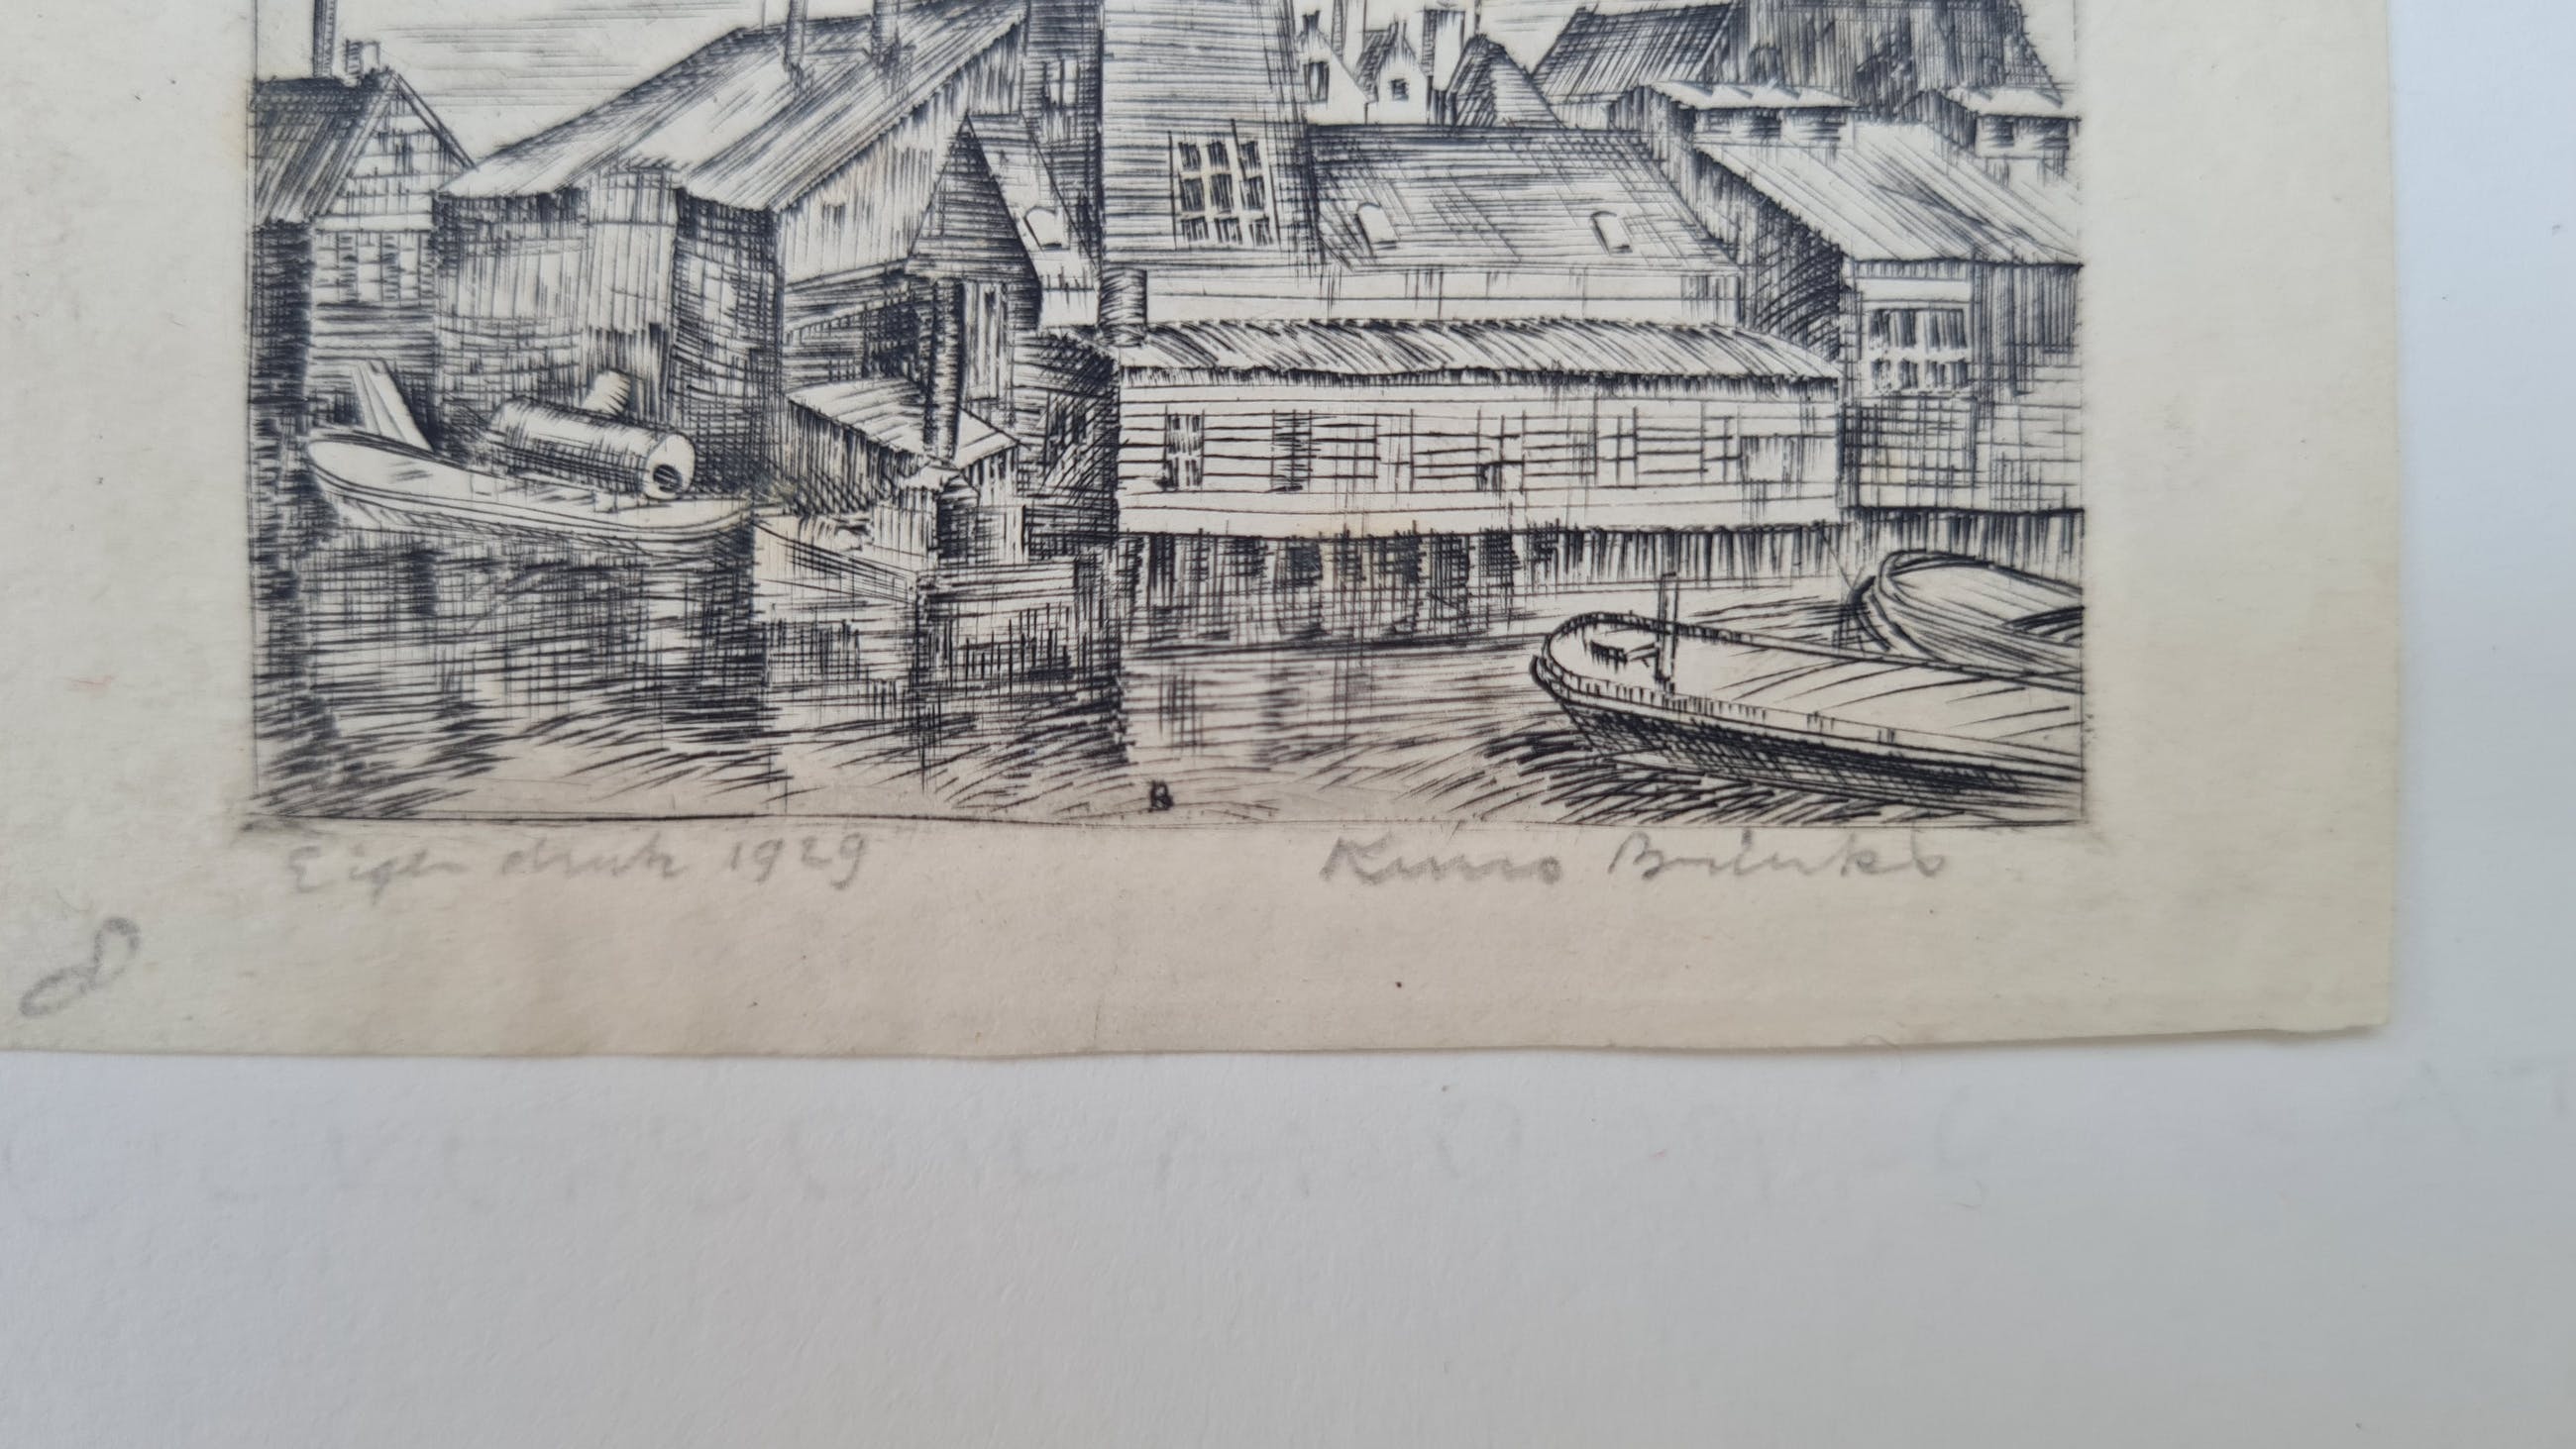 B
Eigen druk 1929
Kuno Brinks
8